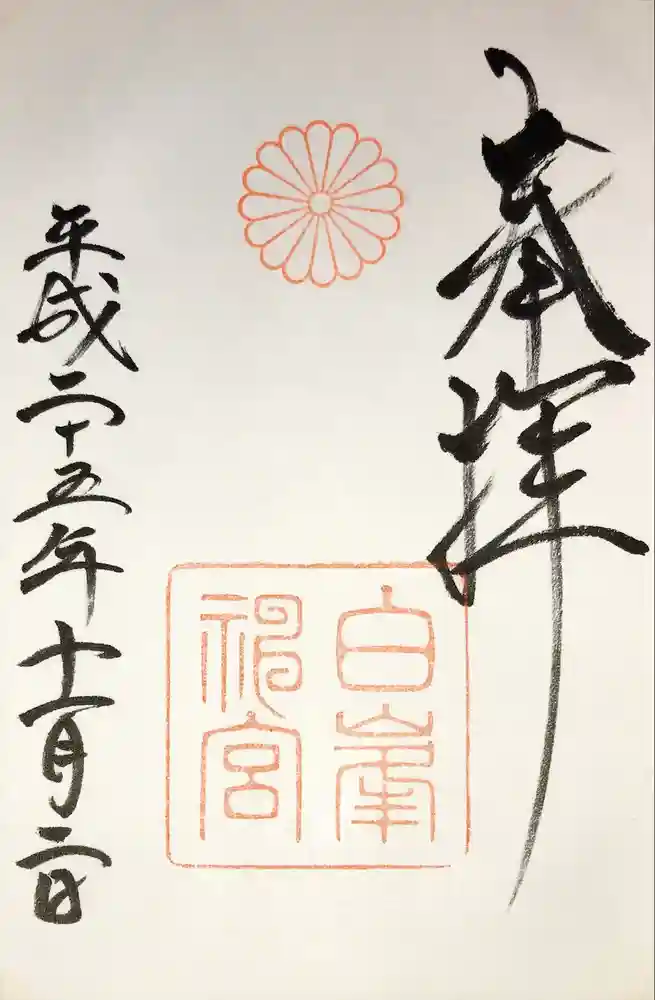 奉拝
白峯
神宮
平成二十五年十一月二日